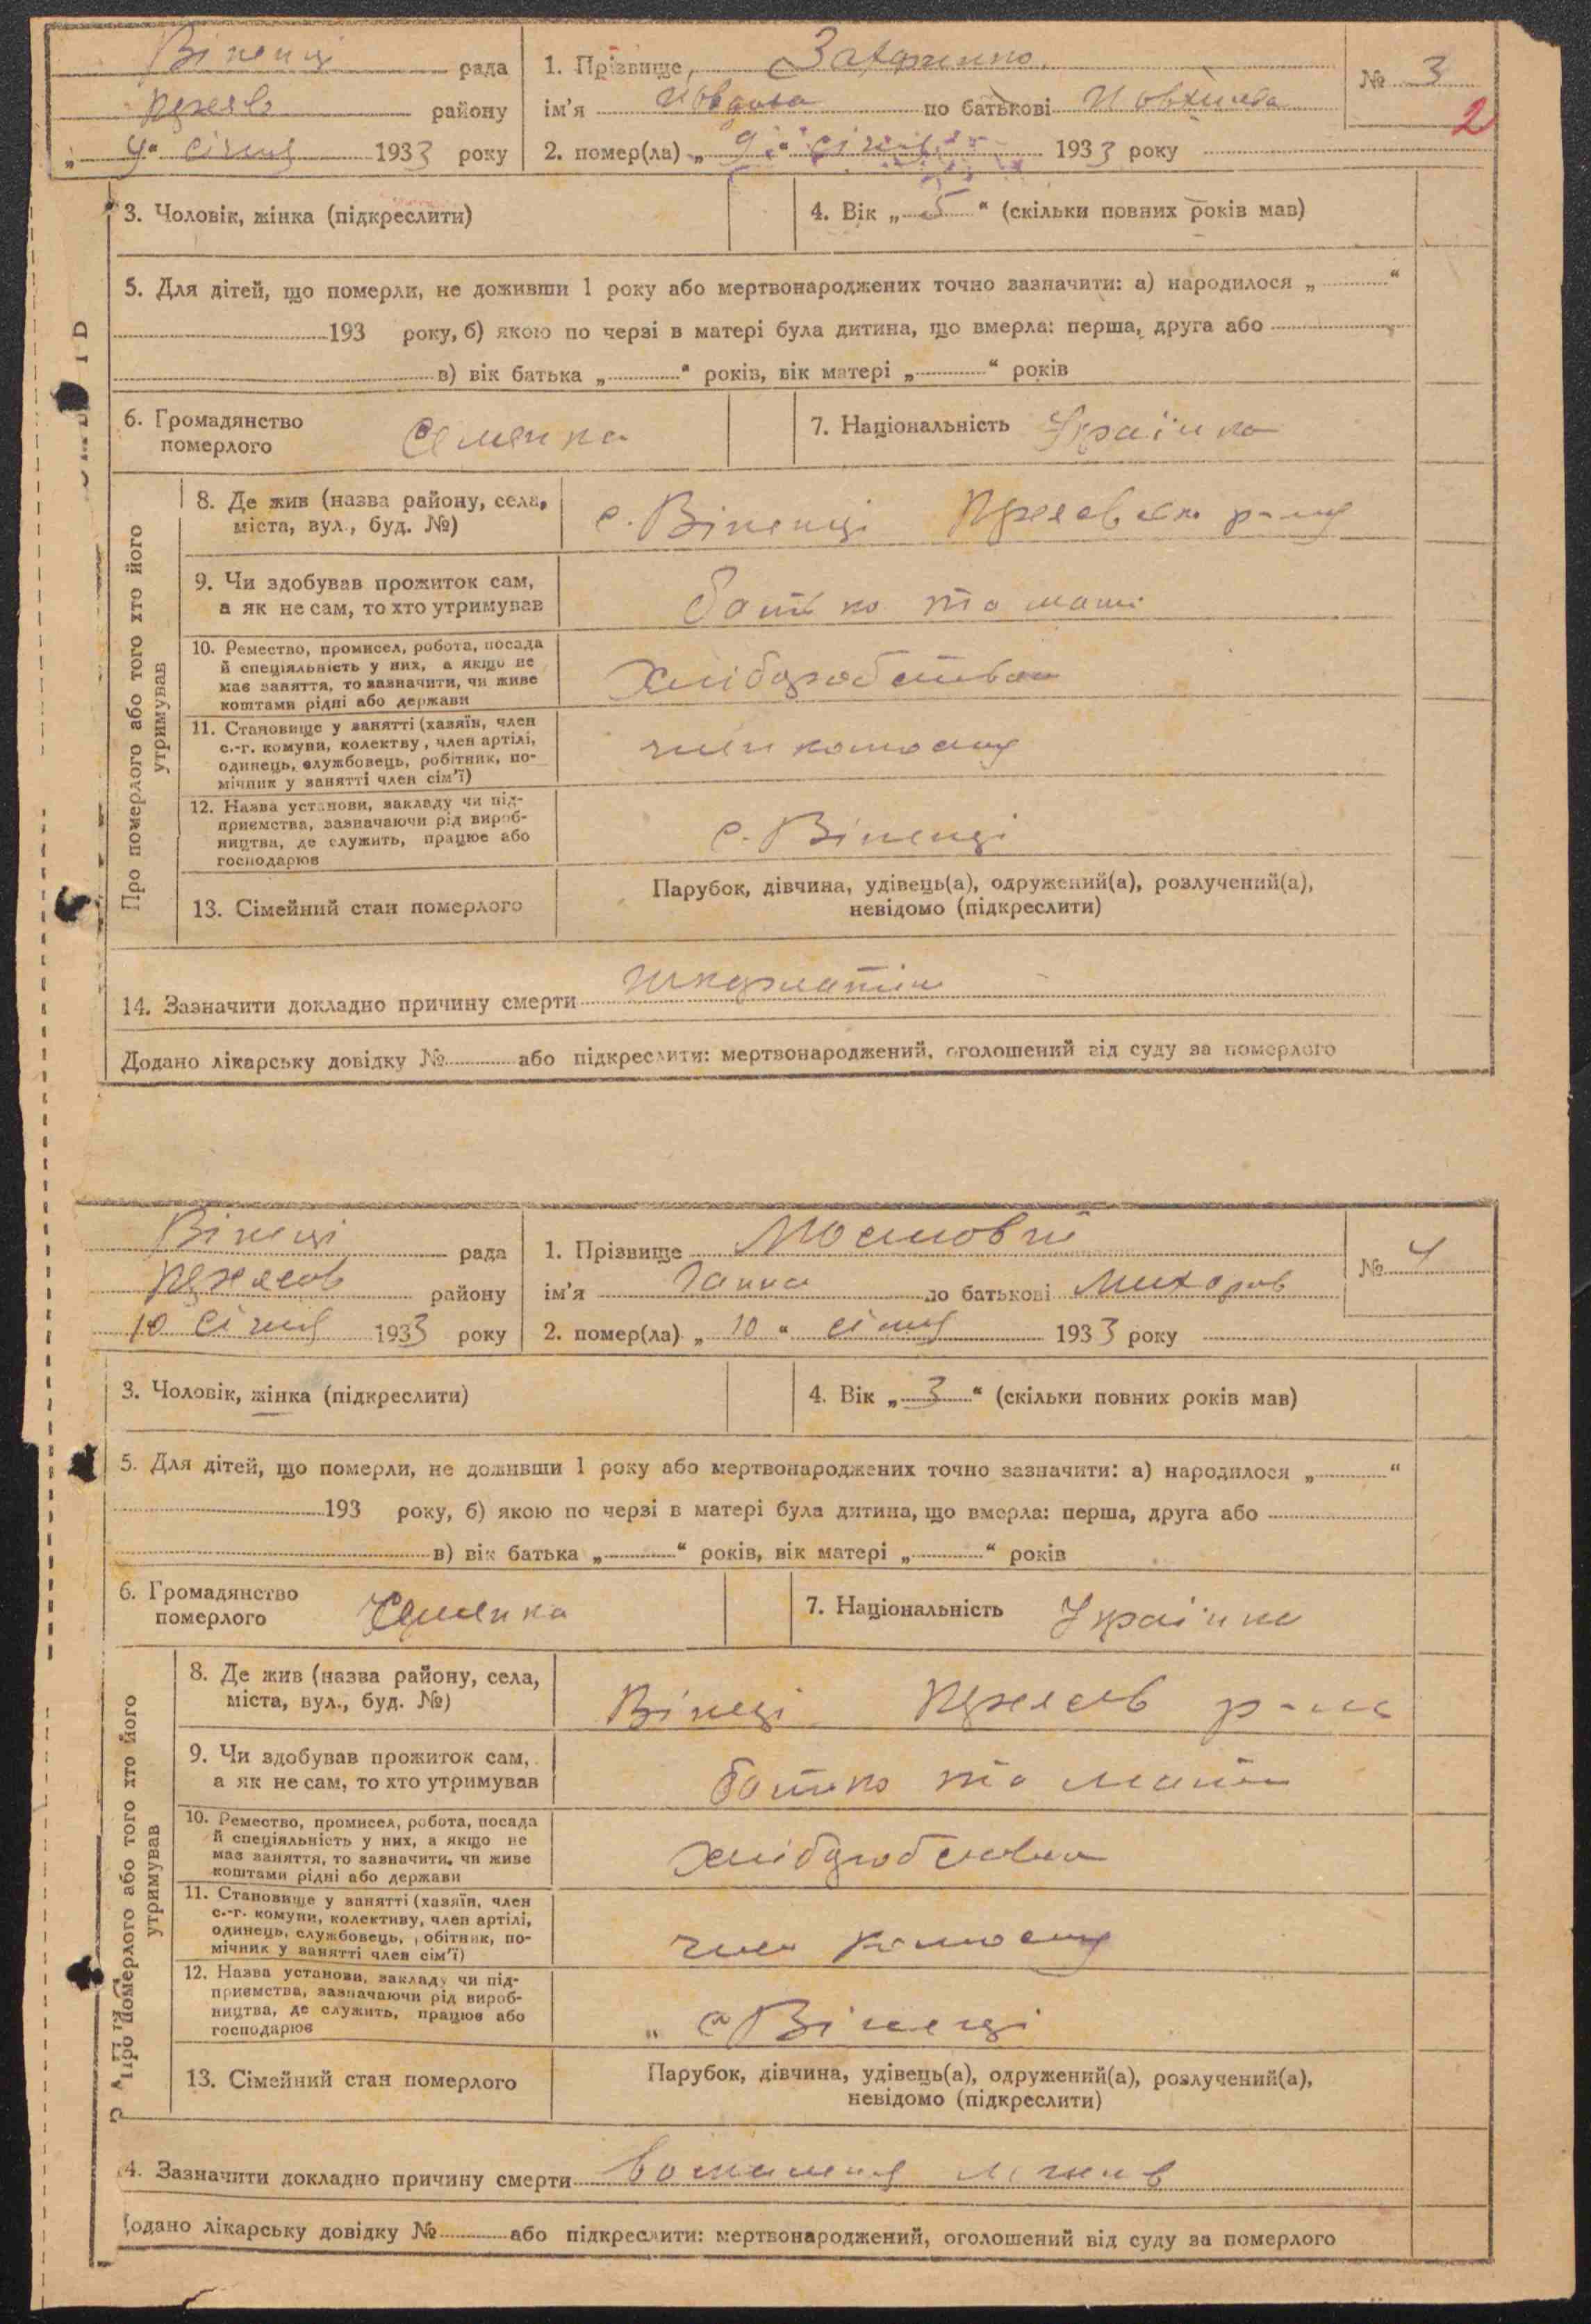 Віненці рада
району
9 січня 1933 року
1. Прізвище Захарченко
ім'я по батькові
2. помер(ла) „ 9 “ січня 1933 року
№ 3
2
3. Чоловік, жінка (підкреслити)
4. Вік „ 5 “ (скільки повних років мав)
5. Для дітей, що померли, не доживши 1 року або мертвонароджених точно зазначити: а) народилося „ “
193 року, б) якою по черзі в матері була дитина, що вмерла: перша, друга або
в) вік батька „ “ років, вік матері „ “ років
6. Громадянство
померлого
Селянка
7. Національність Українка
Про померлого або того хто його
утримував
8. Де жив (назва району, села,
міста, вул., буд. №)
с. Віненці р-ну
9. Чи здобував прожиток сам,
а як не сам, то хто утримував
батько та мати
10. Ремество, промисел, робота, посада
й спеціяльність у них, а якщо не
має заняття, то зазначити, чи живе
коштами рідні або держави
Хліборобство
11. Становище у занятті (хазяїн, член
с.-г. комуни, колективу, член артілі,
одинець, службовець, робітник, по-
мічник у занятті член сім'ї)
член колгоспу
12. Назва установи, закладу чи під-
приємства, зазначаючи рід вироб-
ництва, де служить, працює або
господарює
с. Віненці
13. Сімейний стан померлого
Парубок, дівчина, удівець(а), одружений(а), розлучений(а),
невідомо (підкреслити)
14. Зазначити докладно причину смерти шкарлатіна
Додано лікарську довідку № або підкреслити: мертвонароджений, оголошений від суду за померлого
Вінеці рада
району
10 січня 1933 року
1. Прізвище Мостовий
ім'я Ганна по батькові
2. помер(ла) „ 10 “ січня 1933 року
№ 4
3. Чоловік, жінка (підкреслити)
4. Вік „ 3 “ (скільки повних років мав)
5. Для дітей, що померли, не доживши 1 року або мертвонароджених точно зазначити: а) народилося „ “
193 року, б) якою по черзі в матері була дитина, що вмерла: перша, друга або
в) вік батька „ “ років, вік матері „ “ років
6. Громадянство
померлого
Селянка
7. Національність Українка
Про померлого або того хто його
утримував
8. Де жив (назва району, села,
міста, вул., буд. №)
Вінеці р-на
9. Чи здобував прожиток сам,
а як не сам, то хто утримував
батько та мати
10. Ремество, промисел, робота, посада
й спеціяльність у них, а якщо не
має заняття, то зазначити, чи живе
коштами рідні або держави
хліборобство
11. Становище у занятті (хазяїн, член
с.-г. комуни, колективу, член артілі,
одинець, службовець, робітник, по-
мічник у занятті член сім'ї)
член колгоспу
12. Назва установи, закладу чи під-
приємства, зазначаючи рід вироб-
ництва, де служить, працює або
господарює
„ с Віненці
13. Сімейний стан померлого
Парубок, дівчина, удівець(а), одружений(а), розлучений(а),
невідомо (підкреслити)
4. Зазначити докладно причину смерти
одано лікарську довідку № або підкреслити: мертвонароджений, оголошений від суду за померлого